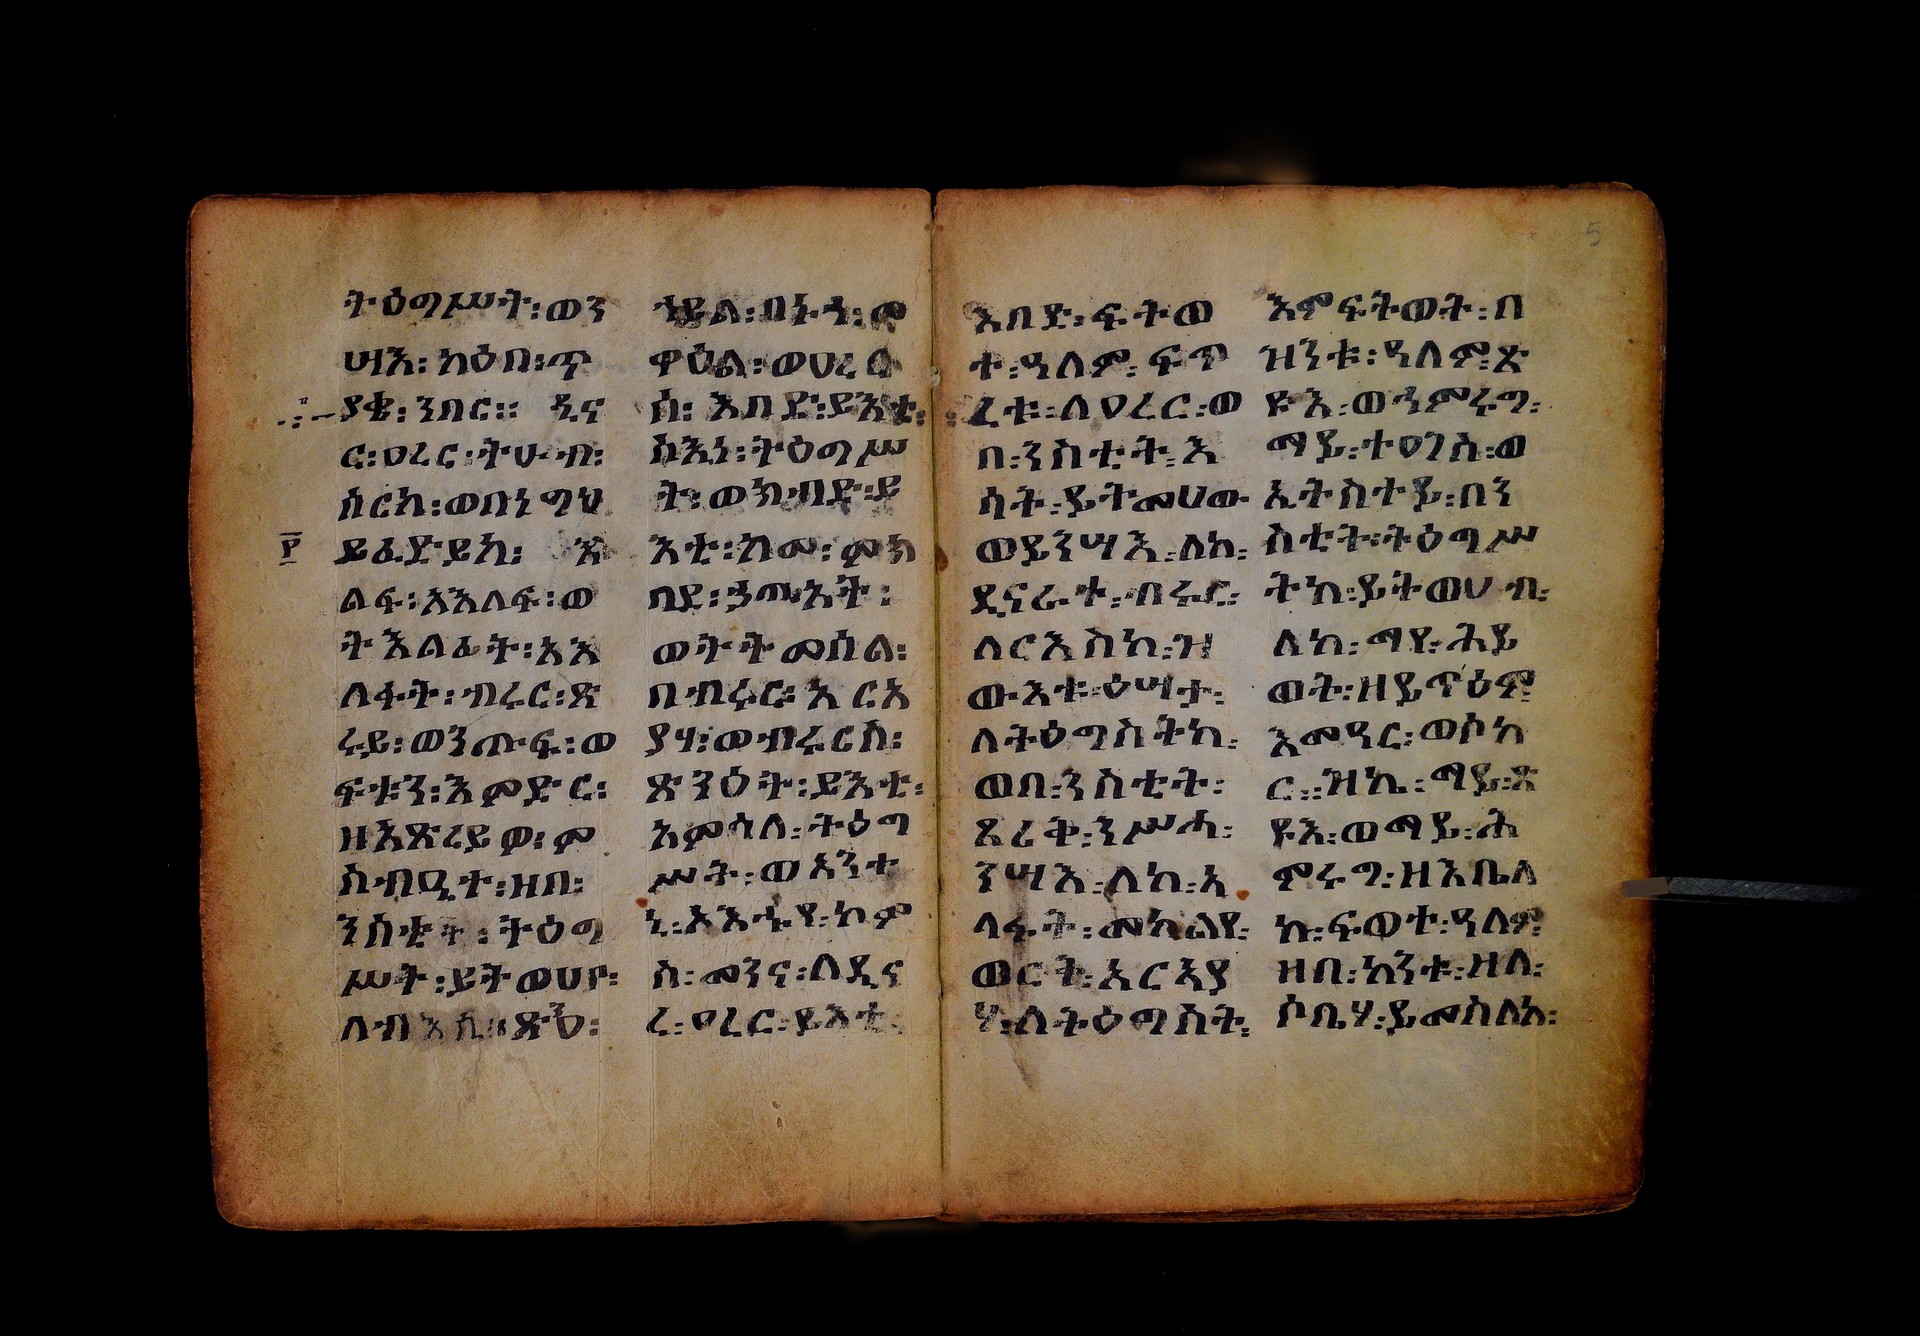 ትዕግሥት፡ወን
ሣእ፡ ክዕበ፡ጥ
ያቄ፡ ንበር። ዲና
ር፡ፀረር፡ትሁብ፡
ሰርክ፡ወበነግህ
፻
ይፈድይከ፡ እ
ልፍ፡አእላፍ፡ወ
ትእልፊት፡አእ
ላፋት፡ብሩር፡ጽ
ሩይ፡ወንጡፍ፡ወ
ፍቱን፡እምድር፡
ዘአጽረይዎ፡ም
ስብዒተ፡ዘበ፡
ንስቲት፡ ትዕግ
ሥት፡ይትወሀየ፡
ዋዕል፡ወሀረ
ሰ፡ እበድ፡ይእቲ፡
ስእነ፡ትዕግሥ
ት፡ ወክብድ፡ይ
እቲ፡ከመ፡ ምክ
በደ፡ኃጢአት፡
ወትትመሰል፡
በብሩር፡ አርአ
ያሃ፡ወብሩርሰ፡
ጽንዕት፡ይእቲ፡
አምሳለ፡ትዕግ
ሥት፡ወአንተ
ኒ፡እእኁየ፡ኩም
ሰ፡ መንና፡ለዲና
ረ፡ ፀረር፡ይእቲ፡
5
እበድ፡ፍትወ
ተ፡ዓለም፡ ፍጥ
ረቱ፡ለፀረር፡ወ
በ፡ንስቲት፡እ
ሳት፡ይትመሀው
ወይንሣእ፡ለከ፡
ዲናራተ፡ብሩር፡
ለርእስከ፡ዝ
ውእቱ፡ዕሣታ፡
ለትዕግስትከ፡
ወበ፡ንስቲት፡
ጸረቅ፡ንሥሓ፡
ንሣእ፡ለከ፡እ
ላፋት፡መክልየ፡
ወርት፡አርአያ
ሃ፡ለትዕግስት፡
እምፍትወት፡በ
ዝንቱ፡ዓለም፡ጽ
ዩእ፡ወኅምሩግ፡
ማይ፡ተፀገሰ፡ወ
ኢትስተይ፡በን
ስቲት፡ትዕግሥ
ትከ፡ይትወሀብ፡
ለከ፡ማየ፡ሕይ
ወት፡ዘይጥዕም
እመዓር፡ወሶከ
ር፡፡ዝኬ፡ማይ፡ጽ
ዩእ፡ወማይ፡ሕ
ምሩግ፡ዘእቤለ
ከ፡ፍወተ፡ዓለም
ዘበ፡ከንቱ፡ዘለ፡
ሶቤሃ፡ይመስለአ፡